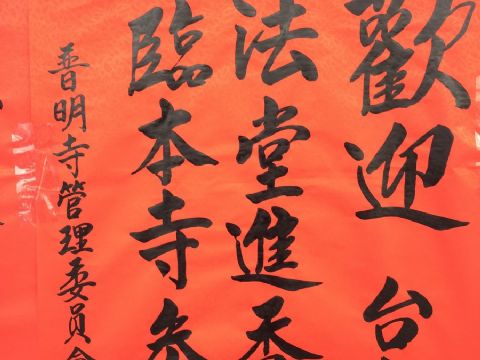 歡迎 台
法堂進香
臨本寺參
普明寺管理委員會